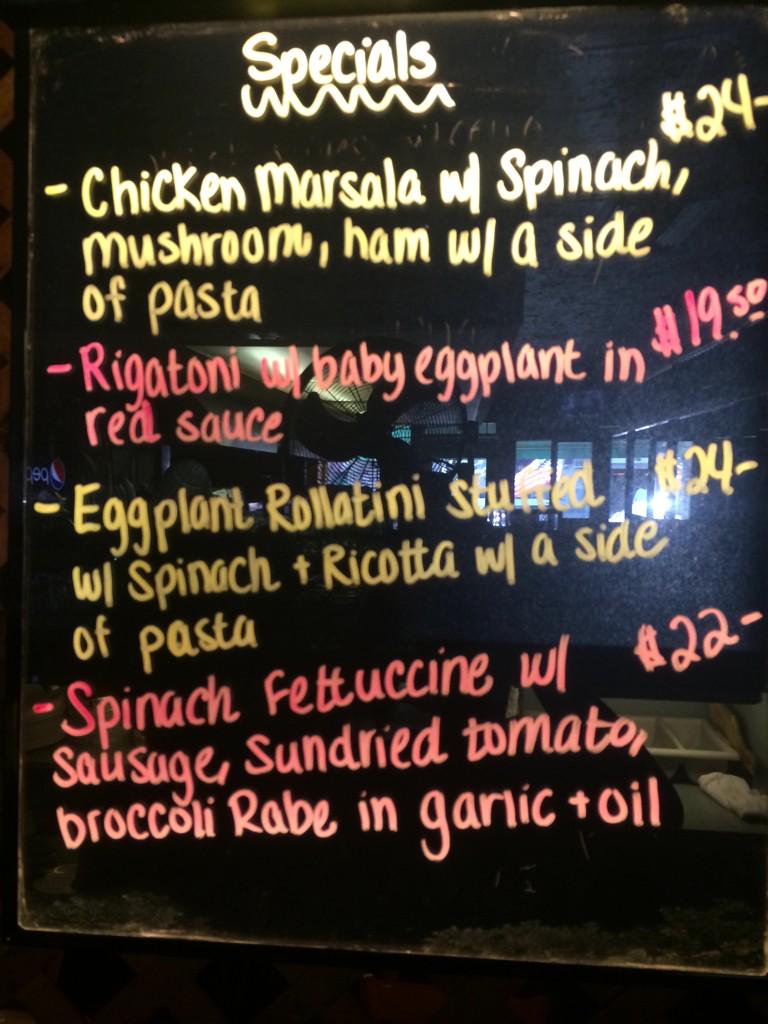 Specials
$24-
- Chicken Marsala w/ Spinach,
mushroom, ham w/ a side
of pasta
$19.50
- Rigatoni w/ baby eggplant in
red sauce
$24-
- Eggplant Rollatini stuffed
w/ Spinach + Ricotta w/ a side
of pasta
$22-
- Spinach Fettuccine w/
sausage, sundried tomato,
broccoli Rabe in garlic + oil